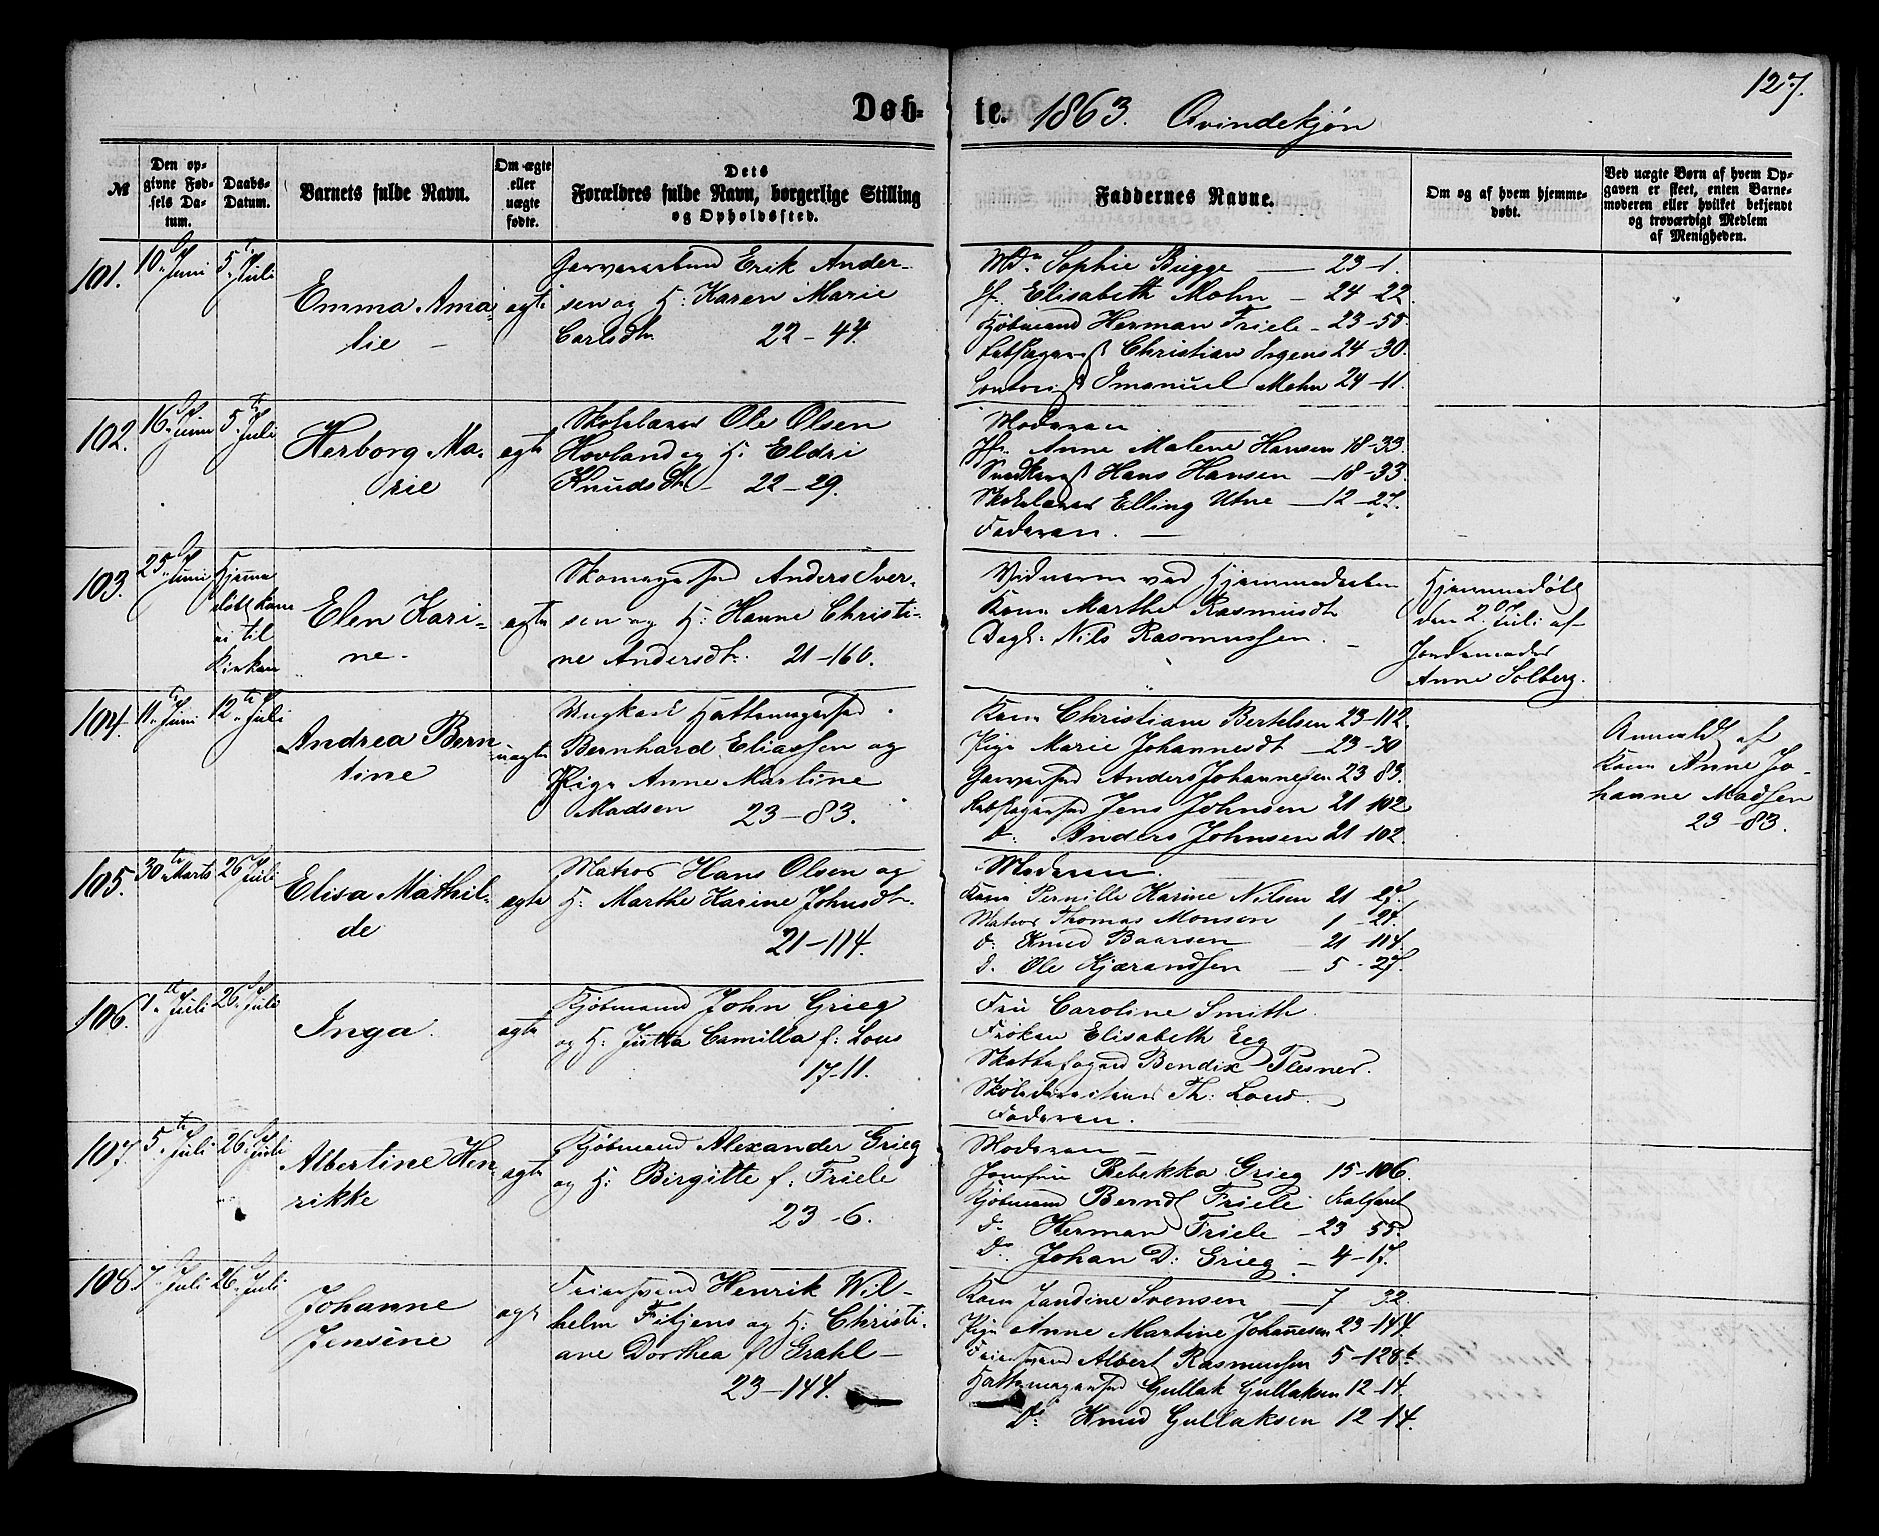 127.
Døb-
te. 1863. Qvindekjøn
№
Den op-
givne Fød-
sels Da-
tum.
Daabs-
Datum.
Barnets fulde Navn.
Om ægte
eller
uægte
fødte.
Dets
Forældres fulde Navn, borgerlige Stilling
og Opholdssted.
Faddernes Navne.
Om og af hvem hjemme-
døbt.
Ved uægte Børn af hvem Op-
gaven er skeet, enten Barne-
moderen eller hvilket bekjendt
og troværdigt Medlem
af Menigheden.
101.
10. Juni
5. Juli
Emma Ama-
lie
ægte
Garversvend Erik Ander-
sen og H: Karen Marie
Carlsdtr. 22-44.
Md. Sophie Bugge 23-1.
Jf. Elisabeth Mohn 24-22.
Kjøbmand Herman Friele 23-55.
Christian Irgens 24-30.
Imanuel Mohn 24-11.
102.
16. Juni
5. Juli
Herborg Ma-
rie
ægte
Skolelærer Ole Olsen
Hovland og H: Eldri
Knudsdtr 22-29.
Moderen
Jfr. Anne Malene Hansen 18-33.
Hans Hansen 18-33.
Skolelærer Elling Utne 12-27.
Faderen.
103.
25. Juni
Hjemme
døbt kom
ei til
Kirken
Elen Kari-
ne.
ægte
Skomagersvd Anders Iver-
sen og H: Hanne Christi-
ne Andersdtr. 21-160.
Vidnerne ved Hjemmedaaben
Kone Marthe Rasmusdtr
Dagk: Nils Rasmussen.
Hjemmedøbt
den 2. Juli af
Jordemoder
Anne Solberg.
104.
11. Juni
12. Juli
Andrea Bern-
tine
uægte
Ungkarl Hattemagersvd
Bernhard Eliassen og
Pige Anne Martine
Madsen 23-83.
Kone Christiane Bertelsen 23-112.
Pige Marie Johannesdt 23-30
Garversvd Anders Johannesen 23 83.
Jens Johnsen 21-102
d. Anders Johnsen 21-102.
Anmeldt af
Kone Anne Jo-
hanne Madsen
23-83.
105.
30. Marts
26. Juli
Elisa Mathil-
de
ægte
Matros Hans Olsen og
H: Marthe Karine Johnsdtr.
21-114.
Moderen.
Kone Pernille Karine Nilsen 21-27.
Matros Thomas Monsen 1-27.
d: Knud Baarsen 21-114.
d. Ole Kjærandsen 5-27.
106.
1. Juli
26. Juli
Inga.
ægte
Kjøbmand John Grieg
og H: Jutta Camilla f: Lous
17-11.
Fru Caroline Smith.
Frøken Elisabeth Eeg
Skattefoged Bendix Plesner.
Skoledirecteur Th: Lous.
Faderen.
107.
5. Juli
26. Juli
Albertine Hen
rikke
ægte
Kjøbmand Alexander Grieg
og H: Birgitte f: Friele
23-6.
Moderen
Jomfru Rebekka Grieg 15-106.
Kjøbmand Berndt Friele Kalfaret
d. Herman Friele 23 55.
D. Johan D: Grieg 4-17.
108.
7. Juli
26. Juli
Johanne
Jensine
ægte
Feiersvend Henrik Wil-
helm Fitjens og H: Christi-
ane Dorthea f Grahl
23-144.
Kone Jandine Svensen 7 32.
Pige Anne Martine Johannesen 23-144.
Feiersvend Albert Rasmussen 5-128b
Hattemagersvd Gullak Gullaksen 12-14.
D: Knud Gullaksen 12-14.